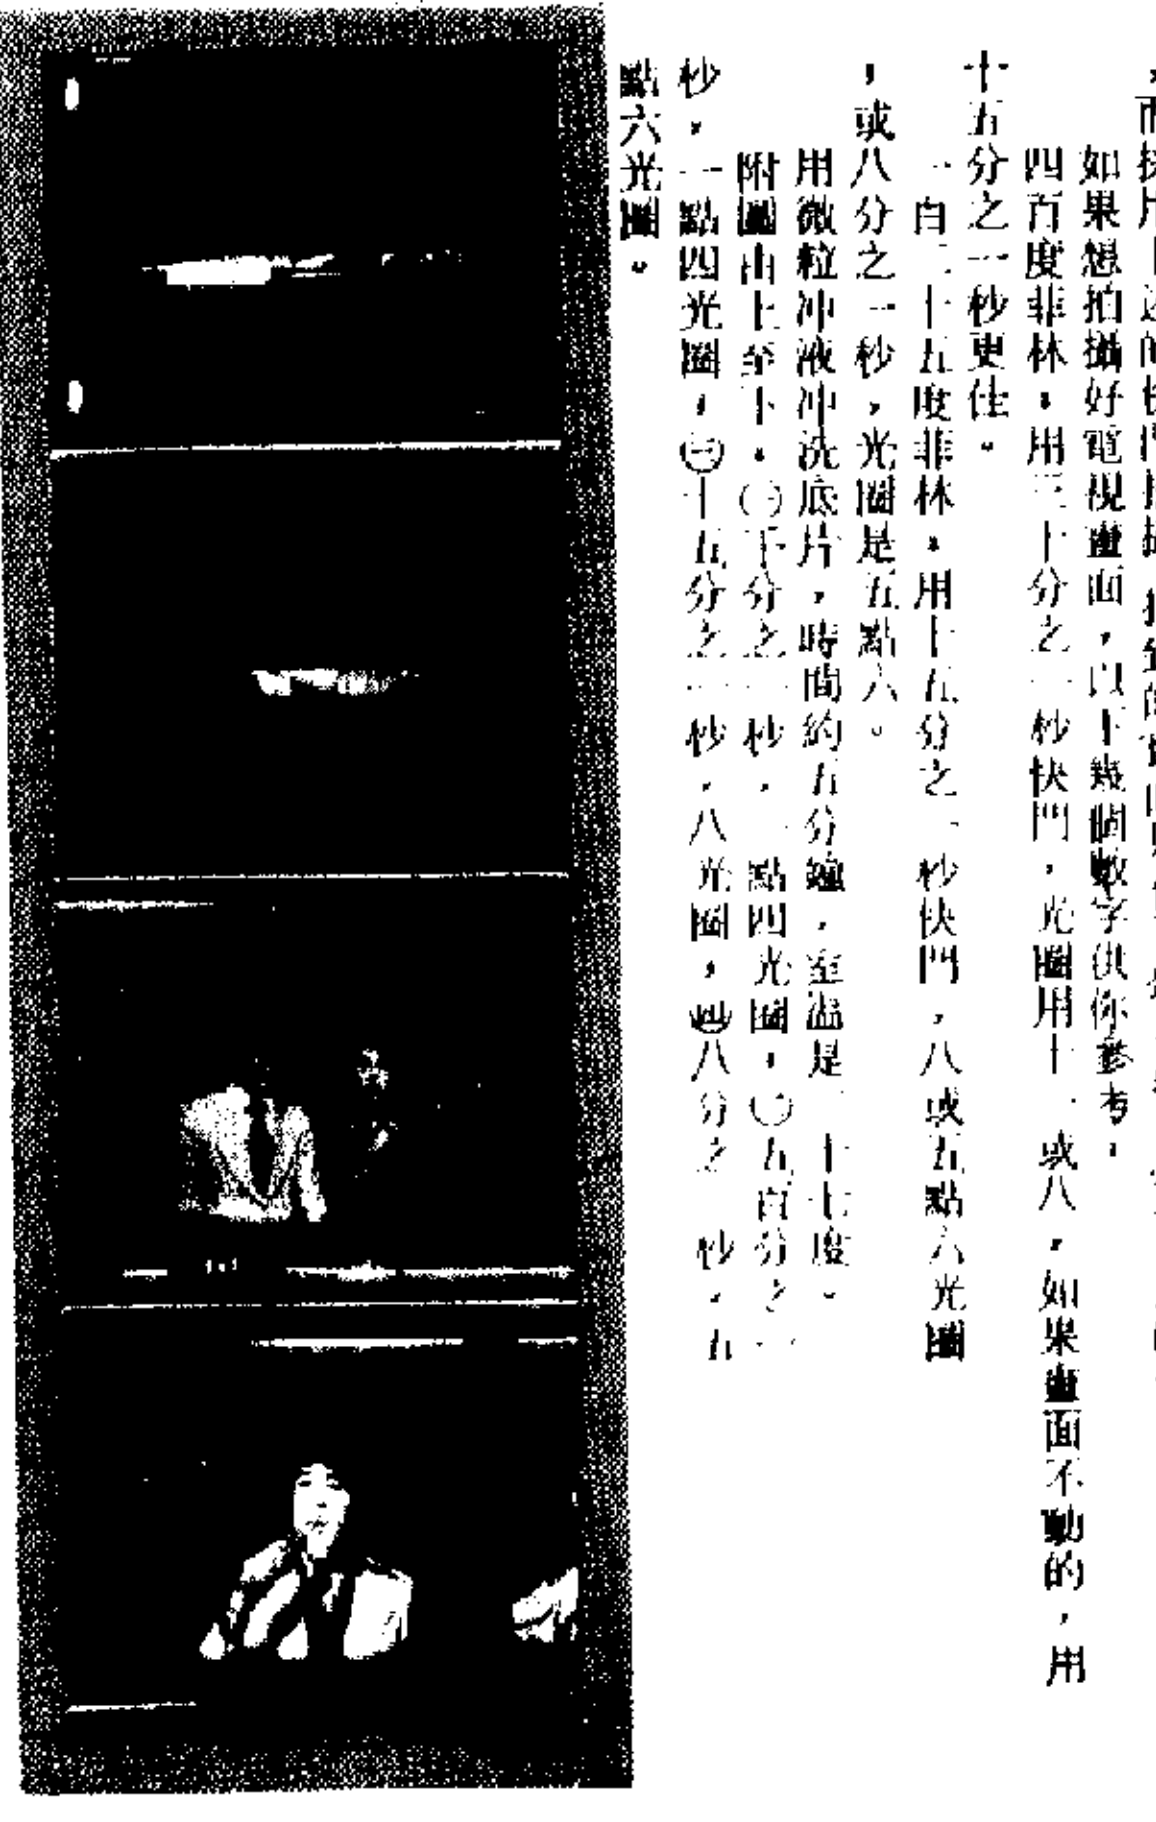 如果想拍攝好電視畫面，以下幾個數字供你參考，
四百度菲林，用三十分之一秒快門，光圈用十一或八，如果畫面不動的，用
十五分之一秒更佳。
一百二十五度菲林，用十五分之一秒快門，八或五點六光圈
，或八分之一秒，光圈是五點六。
用微粒冲液冲洗底片，時間約五分鐘，室温是二十七度。
附圖由上至下，㊀千分之一秒，一點四光圈，㊁五百分之一
秒，一點四光圈，㊂十五分之一秒，八光圈，㊃八分之一秒，五
點六光圈。